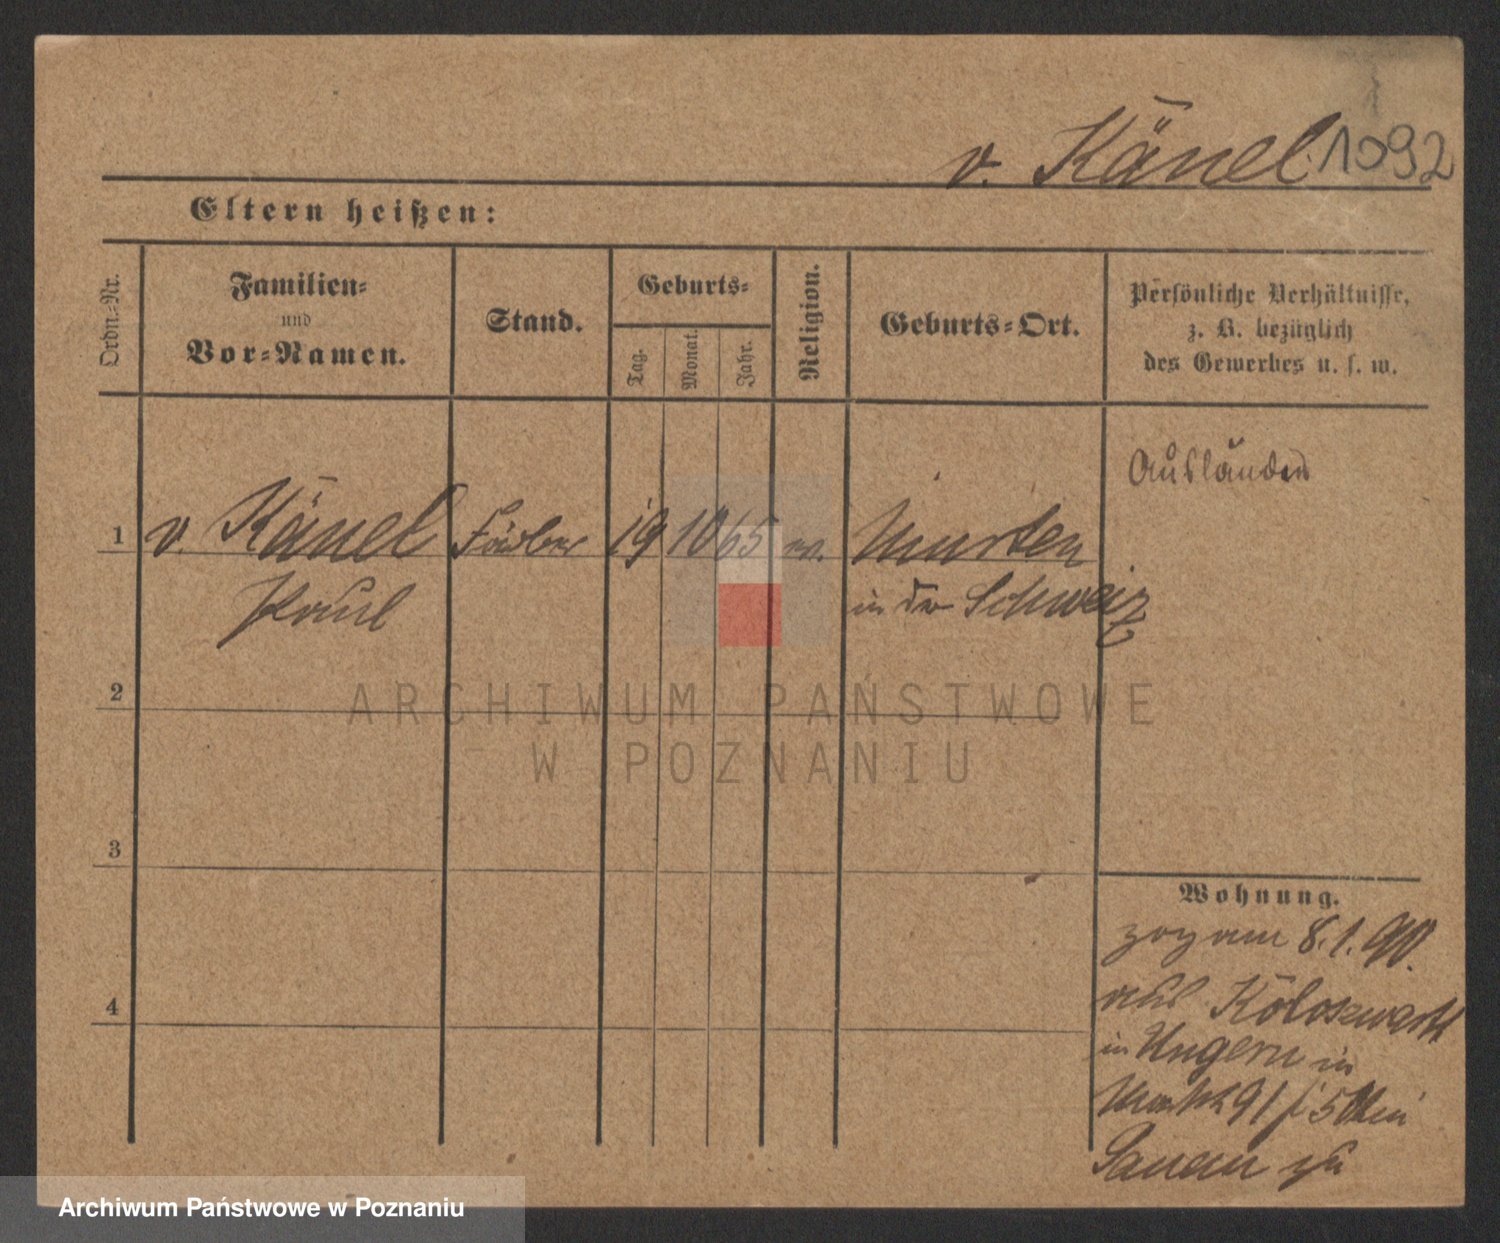 v. Känel 1092
Eltern heißen:
Ordn.-Nr.
Familien-
und
Vor-Namen.
Stand.
Geburts-
Tag.
Monat.
Jahr.
Religion.
Geburts-Ort.
Persönliche Verhältnisse,
z. B. bezüglich
des Gewerbes u. s. w.
Ausländer
1 v. Känel Färber 19 10 65 ev. Murten
Paul in der Schweiz
2
3
4
Wohnung.
zog am 8.1.90.
aus Koloswark
in Ungern in
Markt 91 5 bei
zu
ARCHIWUM PAŃSTWOWE
W POZNANIU
Archiwum Państwowe w Poznaniu